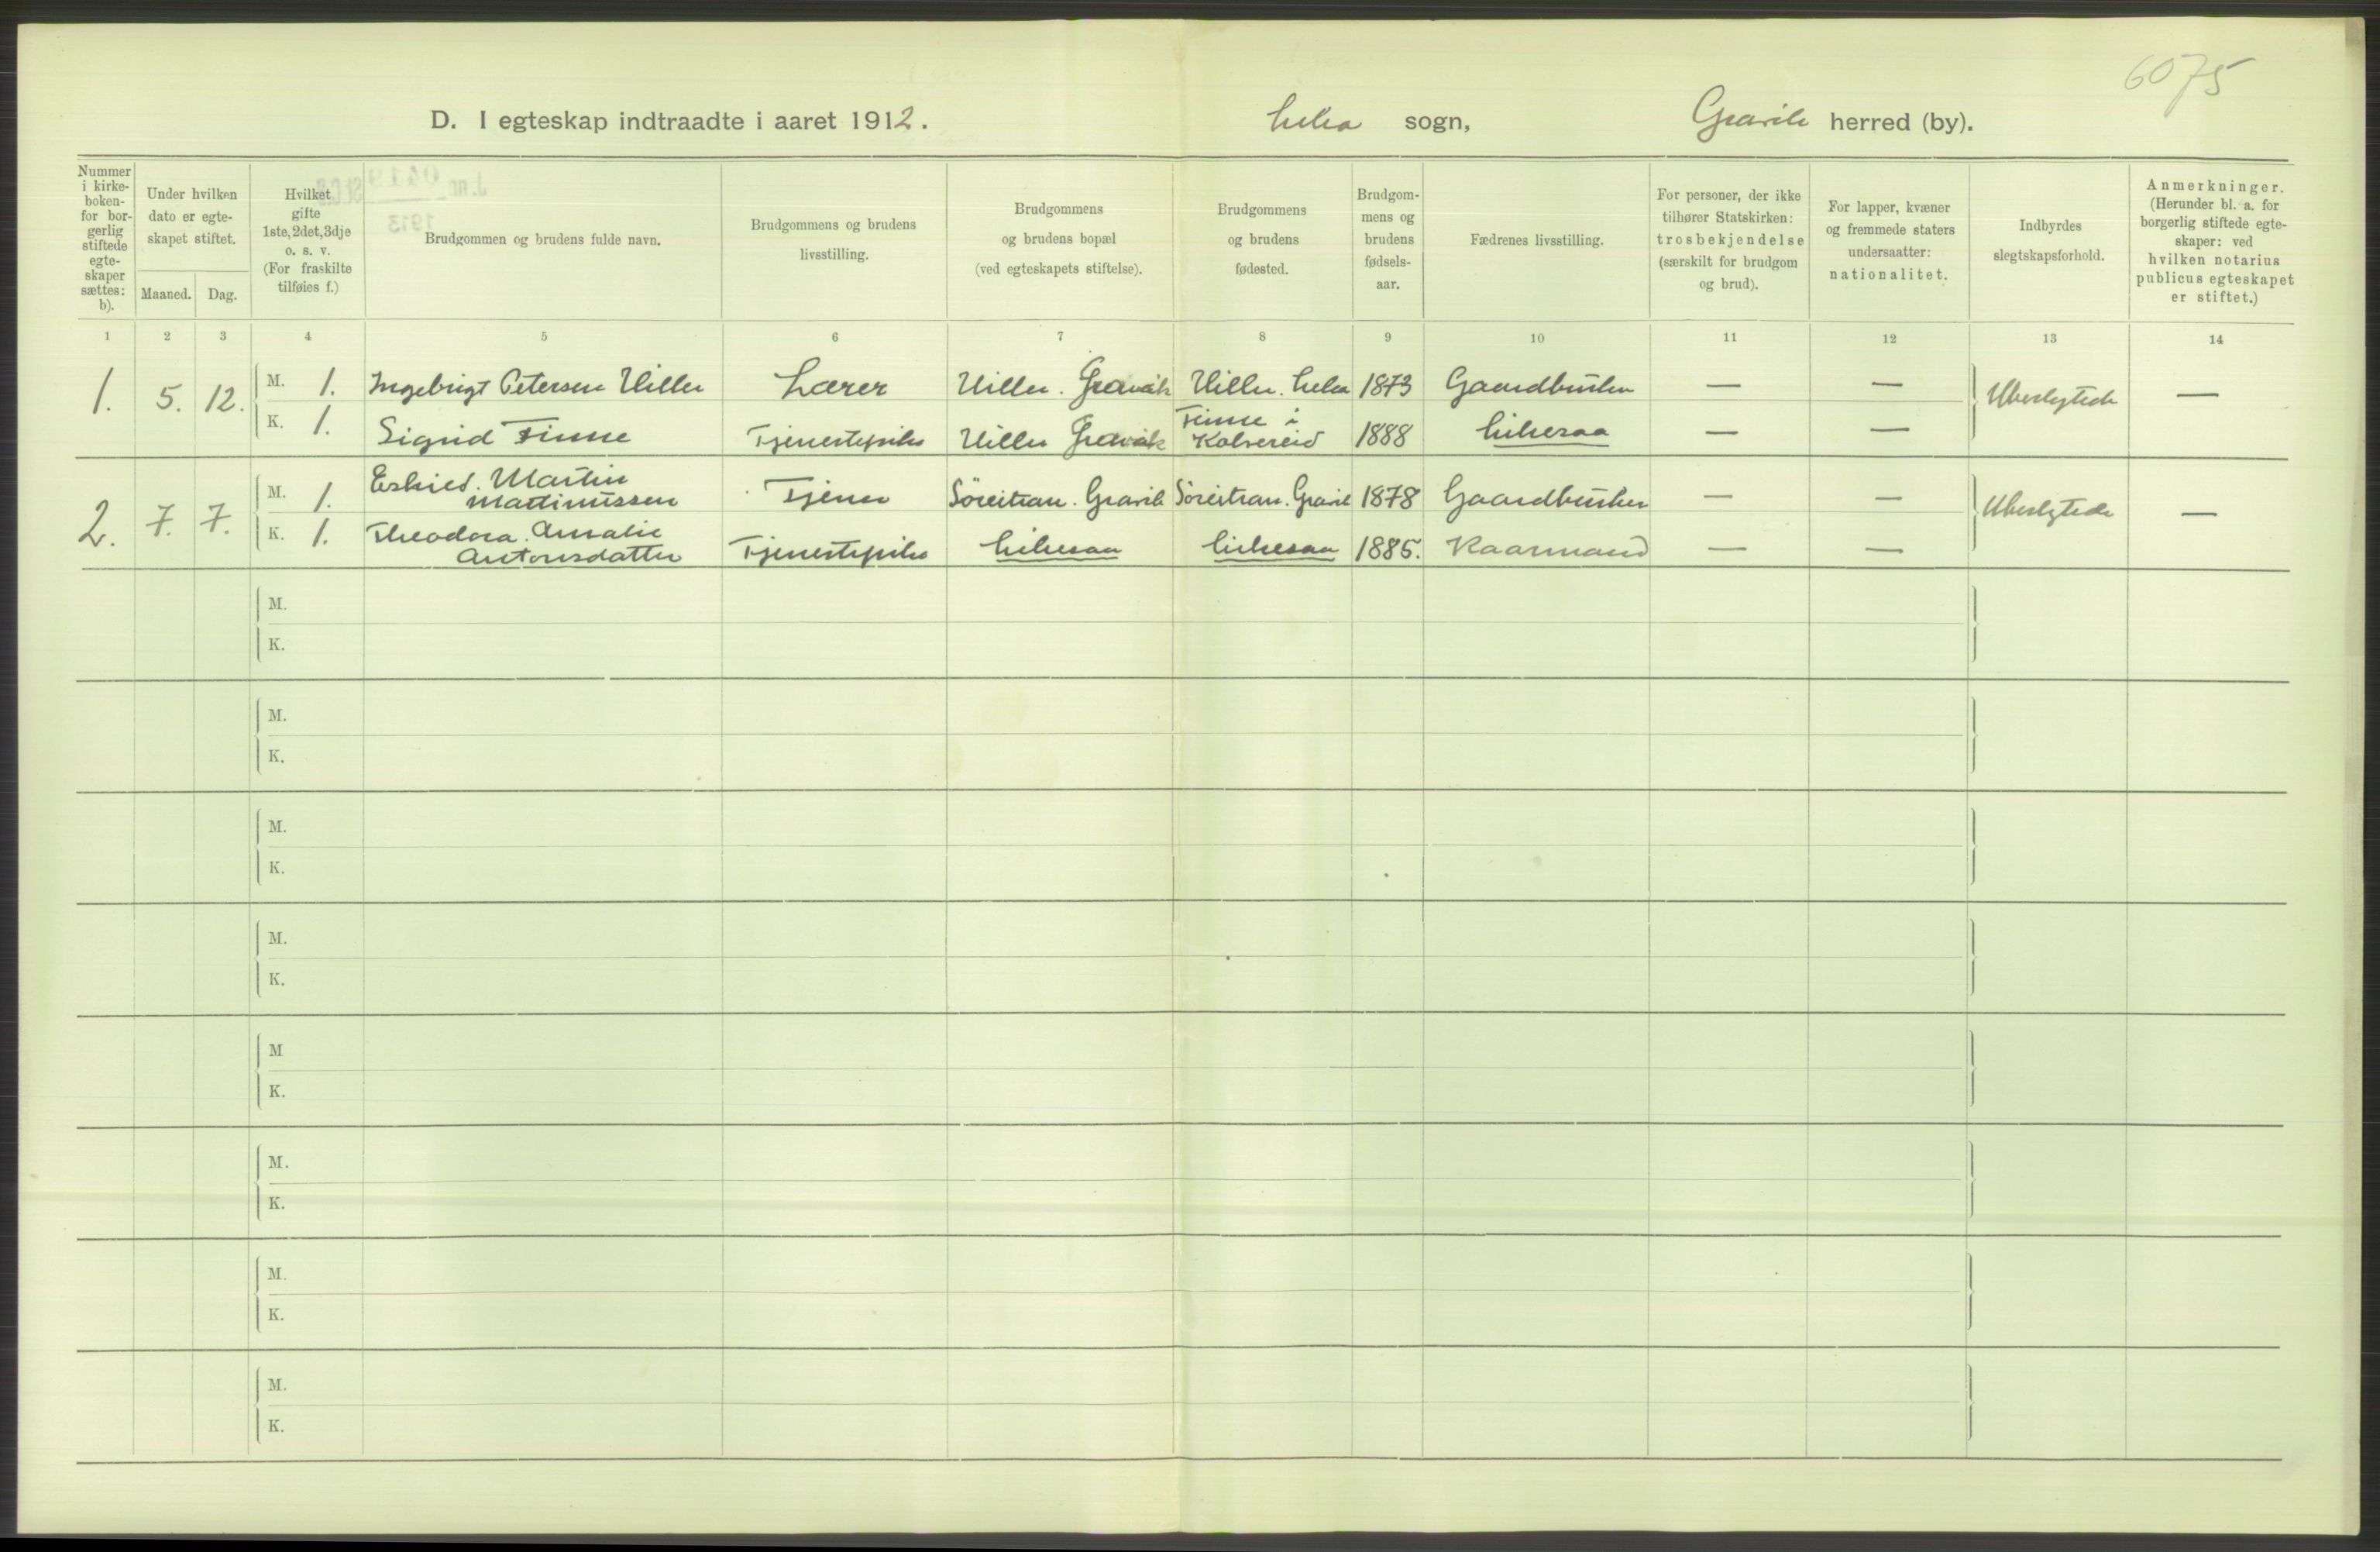 6075
D. I egteskap indtraadte i aaret 1912. Leka sogn, Gravik herred (by).
Nummer i kirke-boken- for bor-gerlig stiftede egte-skaper sættes: b).
Under hvilken dato er egte-skapet stiftet.
Maaned. Dag.
Hvilket gifte 1ste, 2det, 3dje o. s. v. (For fraskilte tilføies f.)
Brudgommen og brudens fulde navn.
Brudgommens og brudens livsstilling.
Brudgommens og brudens bopæl (ved egteskapets stiftelse).
Brudgommens og brudens fødested.
Brudgom-mens og brudens fødsels-aar.
Fædrenes livsstilling.
For personer, der ikke tilhører Statskirken: trosbekjendelse (særskilt for brudgom og brud).
For lapper, kvæner og fremmede staters undersaatter: nationalitet.
Indbyrdes slegtskapsforhold.
Anmerkninger. (Herunder bl. a. for borgerlig stiftede egte-skaper: ved hvilken notarius publicus egteskapet er stiftet.)
1 2 3 4 5 6 7 8 9 10 11 12 13 14
1. 5. 12. M. 1. Ingebrigt Petersen Hiller Lærer Hiller. Gravik Hiller. Leka 1873 Gaardbruker — — Ubeslegtede —
K. 1. Sigrid Finne Tjenestepike Hiller Gravik Finne i Kolvereid 1888 Kirkesan — —
2. 7. 7. M. 1. Martin Martinussen Tjener Søreitran. Gravik Søreitran. Gravik 1878 Gaardbruker — — Ubeslegtede —
K. 1. Theodora Amalie Antonsdatter Tjenestepike 1885. Kaarmand — —
M.
K.
M.
K.
M.
K.
M.
K.
M
K.
M.
K.
M.
K.
M.
K.